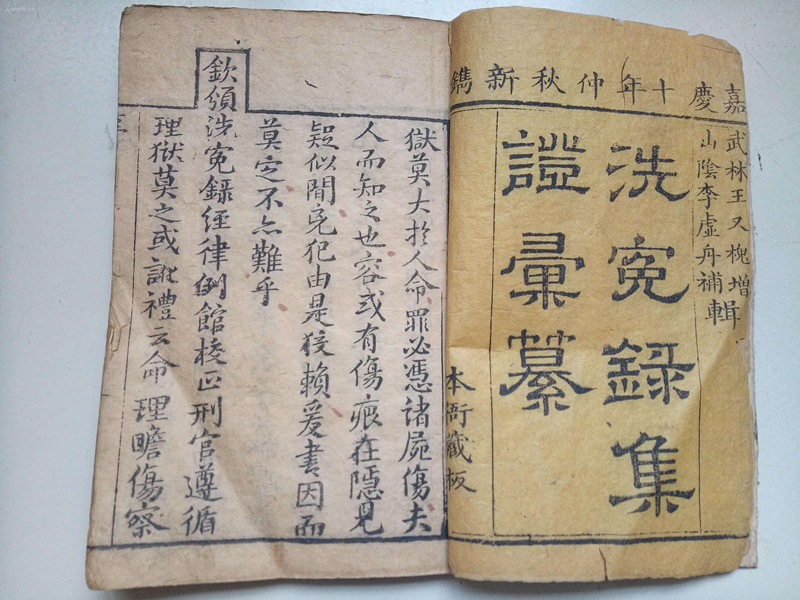 嘉慶十年仲秋新鐫
武林王又槐增輯
山陰李虛舟補輯
洗冤錄集
證彙纂
本衙藏板
獄莫大扵人命罪必憑諸屍傷夫
人而知之也容或有傷痕在隱見
疑似間兇犯由是狡賴爰書因而
莫定不亦難乎
欽頒洗冤錄經律例館校正刑官遵循
理獄莫之或訛禮云命理瞻傷察